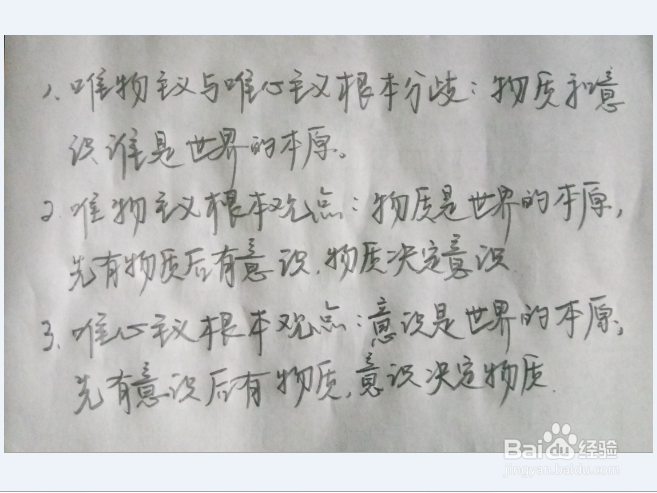 1、唯物主义与唯心主义根本分歧：物质和意
识谁是世界的本原。
2、唯物主义根本观点：物质是世界的本原，
先有物质后有意识，物质决定意识
3、唯心主义根本观点：意识是世界的本原，
先有意识后有物质，意识决定物质.
Baidu经验
jingyan.baidu.com